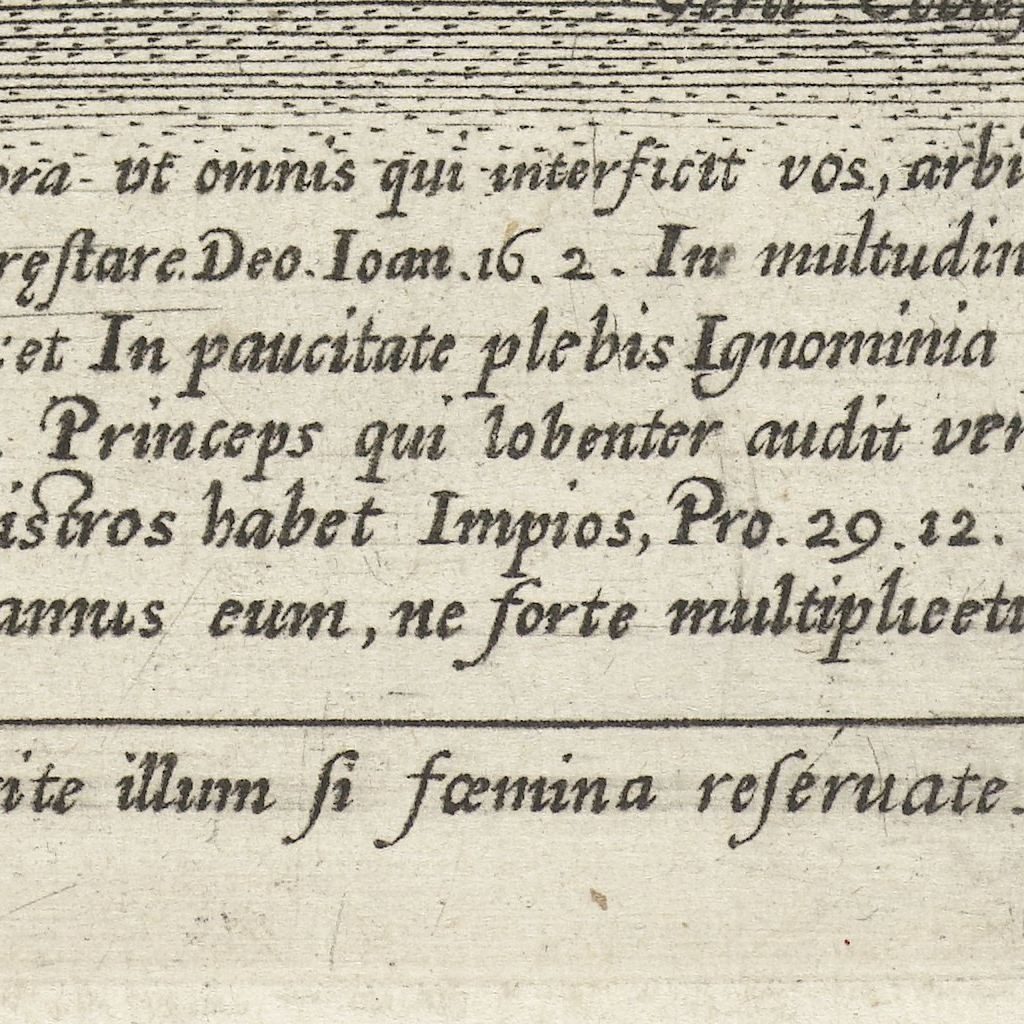 ora ut omnis qui interficit vos, arbi
ręſtare Deo. Ioan. 16. 2. In multudin
et In paucitate plebis Ignominia
Princeps qui lobenter audit ver
istros habet Impios, Pro. 29. 12.
amus eum, ne forte multiplieetu
ite illum ſi fœmina reſeruate.